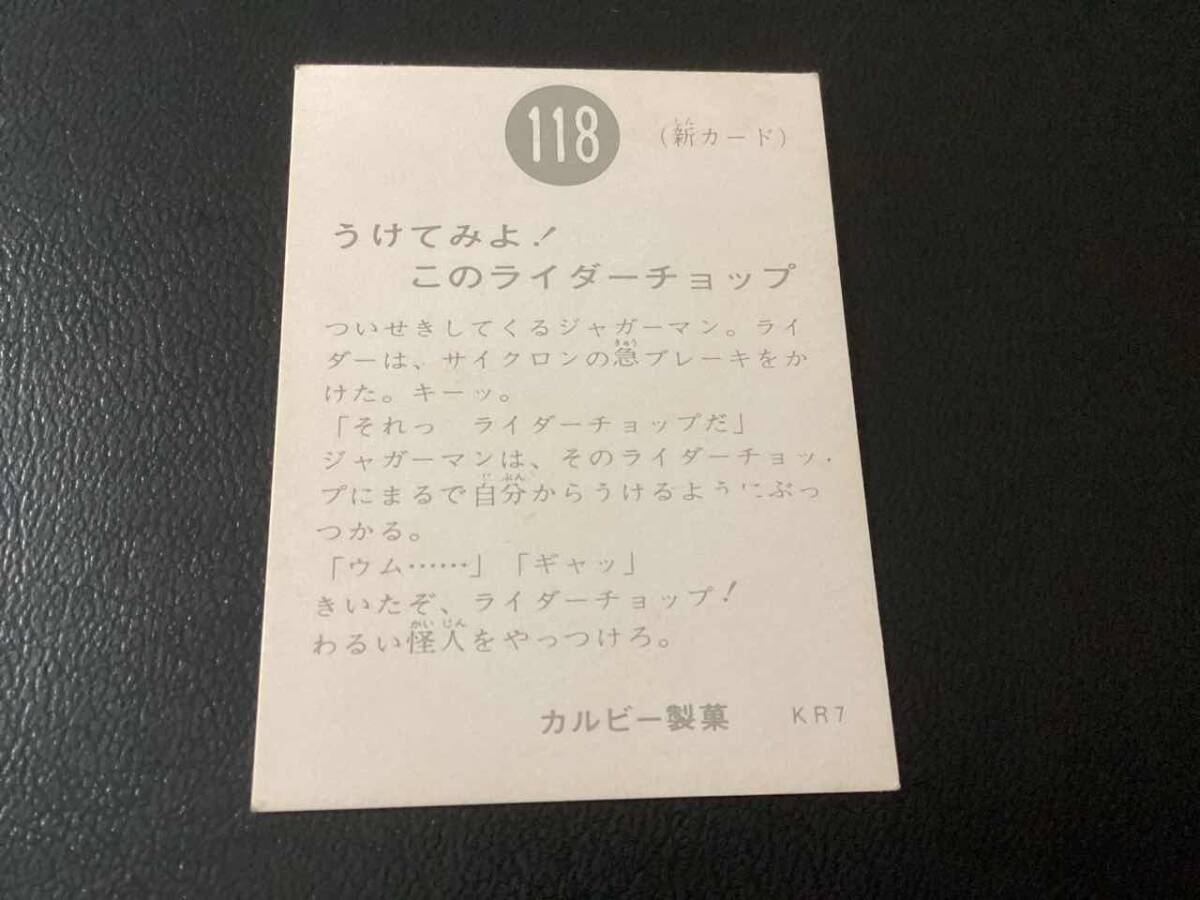 118
（新カード）
うけてみよ！
このライダーチョップ
ついせきしてくるジャガーマン。ライ
ダーは、サイクロンの急ブレーキをか
けた。キーッ。
「それっ　ライダーチョップだ」
ジャガーマンは、そのライダーチョッ
プにまるで自分からうけるようにぶっ
つかる。
「ウム……」「ギャッ」
きいたぞ、ライダーチョップ！
わるい怪人をやっつけろ。
カルビー製菓　KR7